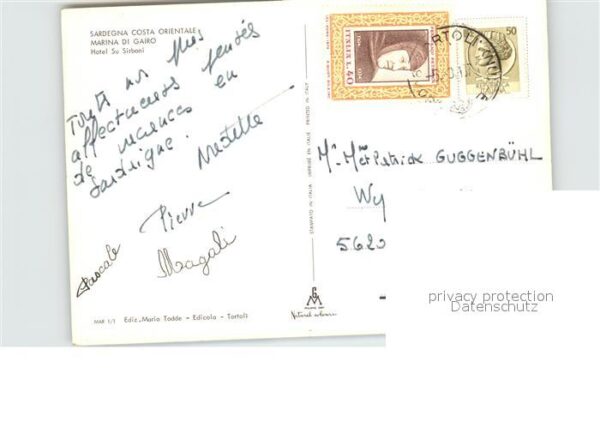 SARDEGNA COSTA ORIENTALE
MARINA DI GAIRO
Hotel Su Sirboni
Toutes nos plus
affectueuses pensées
de vacances en
Sardaigne.
Pierre
Pascale
Magali
MAR 1/1 Ediz. Mario Todde - Edicola - Tortolì
STAMPATO IN ITALIA PRINTED IN ITALY
Natural colour
ITALIA L.40
50
M. Mme Patrick GUGGENBÜHL
Wy
5620
privacy protection
Datenschutz